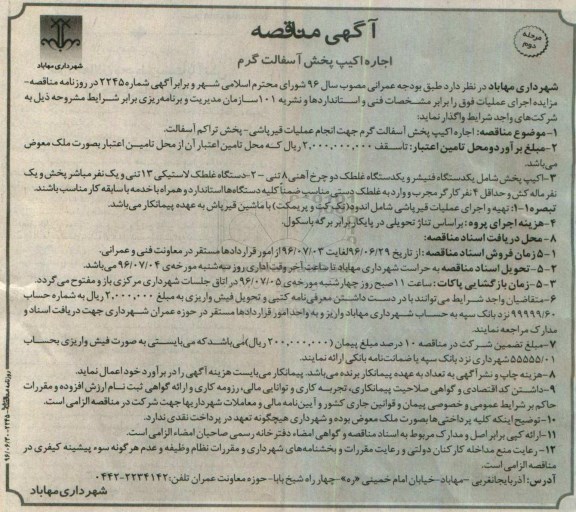 آگهی مناقصه
مرحله دوم
شهرداری مهاباد
اجاره اکیپ پخش آسفالت گرم
شهرداری مهاباد در نظر دارد طبق بودجه عمرانی مصوب سال ۹۶ شورای محترم اسلامی شهر و برابر آگهی شماره ۲۲۴۵ در روزنامه مناقصه-
مزایده اجرای عملیات فوق را برابر مشخصات فنی و استانداردها و نشریه ۱۰۱ سازمان مدیریت و برنامه‌ریزی برابر شرایط مشروحه ذیل به
شرکت‌های واجد شرایط واگذار نماید:
۱-موضوع مناقصه: اجاره اکیپ پخش آسفالت گرم جهت انجام عملیات قیرپاشی- پخش تراکم آسفالت.
۲-مبلغ برآورد و محل تامین اعتبار: تا سقف ۲,۰۰۰,۰۰۰,۰۰۰ ریال که محل تامین اعتبار آن از محل تامین اعتبار بصورت ملک معوض
می‌باشد.
۳-اکیپ پخش شامل یکدستگاه فنیشر و یکدستگاه غلطک دو چرخ آهنی ۸ تنی -۲-دستگاه غلطک لاستیکی ۱۳ تنی و یک نفر مباشر پخش و یک
نفر ماله کش و حداقل ۴ نفر کارگر مجرب و وارد به غلطک دستی مناسب ضمناً کلیه دستگاه‌ها استاندارد و همراه با خدمه با سابقه کار مناسب باشند.
تبصره ۱-۱: تهیه و اجرای عملیات قیرپاشی شامل اندود (تک کت و پریمکت) با ماشین قیرپاش به عهده پیمانکار می‌باشد.
۴-هزینه اجرای پروه: براساس تناژ تحویلی در پایکار برابر برگه باسکول.
۸- محل دریافت اسناد مناقصه:
۱-۵ زمان فروش اسناد مناقصه: از تاریخ ۹۶/۰۶/۲۹ لغایت ۹۶/۰۷/۰۳ از امور قراردادها مستقر در معاونت فنی و عمرانی.
۲-۵- تحویل اسناد مناقصه به حراست شهرداری مهاباد تا ساعت آخر وقت اداری روز سه‌شنبه مورخه‌ی ۹۶/۰۷/۰۴ می‌باشد.
۳-۵-زمان بازگشایی پاکات: ساعت ۱۱ صبح روز چهارشنبه مورخه‌ی ۹۶/۰۷/۰۵ در اتاق جلسات شهرداری مرکزی باز و مفتوح می‌گردد.
۶-متقاضیان واجد شرایط می‌توانند با در دست داشتن معرفی‌نامه کتبی و تحویل فیش واریزی به مبلغ ۲,۰۰۰,۰۰۰ ریال به شماره حساب
۹۹۹۹۹/۶۰ نزد بانک سپه به حساب شهرداری مهاباد واریز و به واحد امور قراردادها مستقر در حوزه عمران شهرداری جهت دریافت اسناد و
مدارک مراجعه نمایند.
۷-مبلغ تضمین شرکت در مناقصه ۱۰ درصد مبلغ پیمان (۲۰۰,۰۰۰,۰۰۰ ریال) می‌باشد که می‌بایستی به صورت فیش واریزی بحساب
۵۵۵۵۵/۰۱ شهرداری نزد بانک سپه یا ضمانت‌نامه بانکی ارائه نمایند.
۸-هزینه چاپ و نشر آگهی به تعداد به عهده پیمانکار برنده می‌باشد. پیمانکار می‌بایست هزینه آگهی را در برآورد خود اعمال نماید.
۹-داشتن کد اقتصادی و گواهی صلاحیت پیمانکاری، تجربه کاری و توانایی مالی، رزومه کاری و ارائه گواهی ثبت نام ارزش افزوده و مقررات
حاکم بر شرایط عمومی و خصوصی پیمان و قوانین جاری کشور و آیین‌نامه مالی و معاملات شهرداریها جهت شرکت در مناقصه الزامی است.
۱۰-توضیح اینکه کلیه پرداختی‌ها بصورت ملک معوض بوده و شهرداری هیچگونه تعهد در پرداخت نقدی ندارد.
۱۱-ارائه کپی برابر اصل و مدارک مربوط به اسناد مناقصه و گواهی امضاء دفترخانه رسمی صاحبان امضاء الزامی است.
۱۲- رعایت منع مداخله کارکنان دولتی و رعایت مقررات و بخشنامه‌های شهرداری و مقررات نظام وظیفه و عدم هر گونه سوء پیشینه کیفری در
مناقصه الزامی است.
آدرس: آذربایجانغربی -مهاباد-خیابان امام خمینی «ره»-چهار راه شیخ بابا- حوزه معاونت عمران تلفن: ۲۲۳۴۱۴۲-۰۴۴۲
شهرداری مهاباد